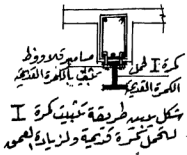 مسامير قلاووظ
تثبت بالكمرة القديمة
كمرة I تحمل
الكمرة القديمة
شكل يبين طريقة تثبيت كمرة I
لتحمل كمرة قديمة ولزيادة العمق